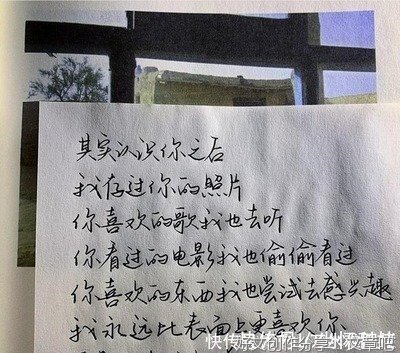 其实认识你之后
我存过你的照片
你喜欢的歌我也去听
你看过的电影我也偷偷看过
你喜欢的东西我也尝试去感兴趣
我永远比表面上更喜欢你
快传号